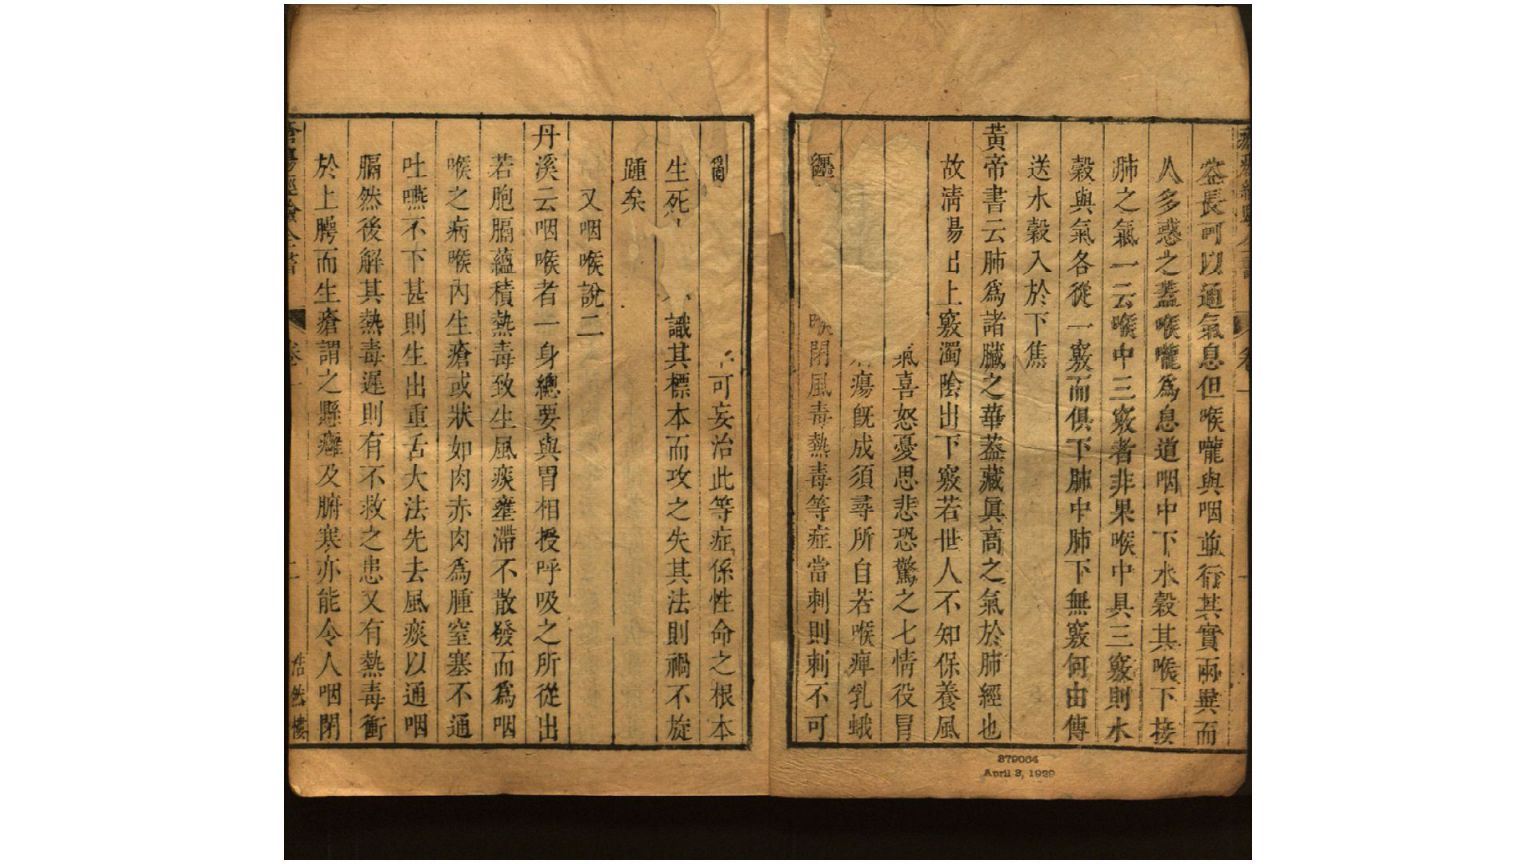 蓋長可以通氣息但喉嚨與咽並行其實兩異而
人多惑之蓋喉嚨為息道咽中下水穀其喉下接
肺之氣一云喉中三竅者非果喉中具三竅則水
穀與氣各從一竅而俱下肺中肺下無竅何由傳
送水穀入於下焦
黃帝書云肺為諸臟之華蓋藏眞高之氣於肺經也
故清陽出上竅濁陰出下竅若世人不知保養風
氣喜怒憂思悲恐驚之七情役冒
瘍旣成須尋所自若喉痺乳蛾
喉閉風毒熱毒等症當刺則刺不可
可妄治此等症係性命之根本
生死 識其標本而攻之失其法則禍不旋
踵矣
又咽喉說二
丹溪云咽喉者一身總要與胃相授呼吸之所從出
若胞膈蘊積熱毒致生風痰壅滯不散發而為咽
喉之病喉內生瘡或狀如肉赤肉為腫窒塞不通
吐嚥不下甚則生出重舌大法先去風痰以通咽
膈然後解其熱毒遲則有不救之患又有熱毒衝
於上腭而生瘡謂之懸癰及腑寒亦能令人咽閉
卷一
二
浩然樓
379064
April 3, 1929